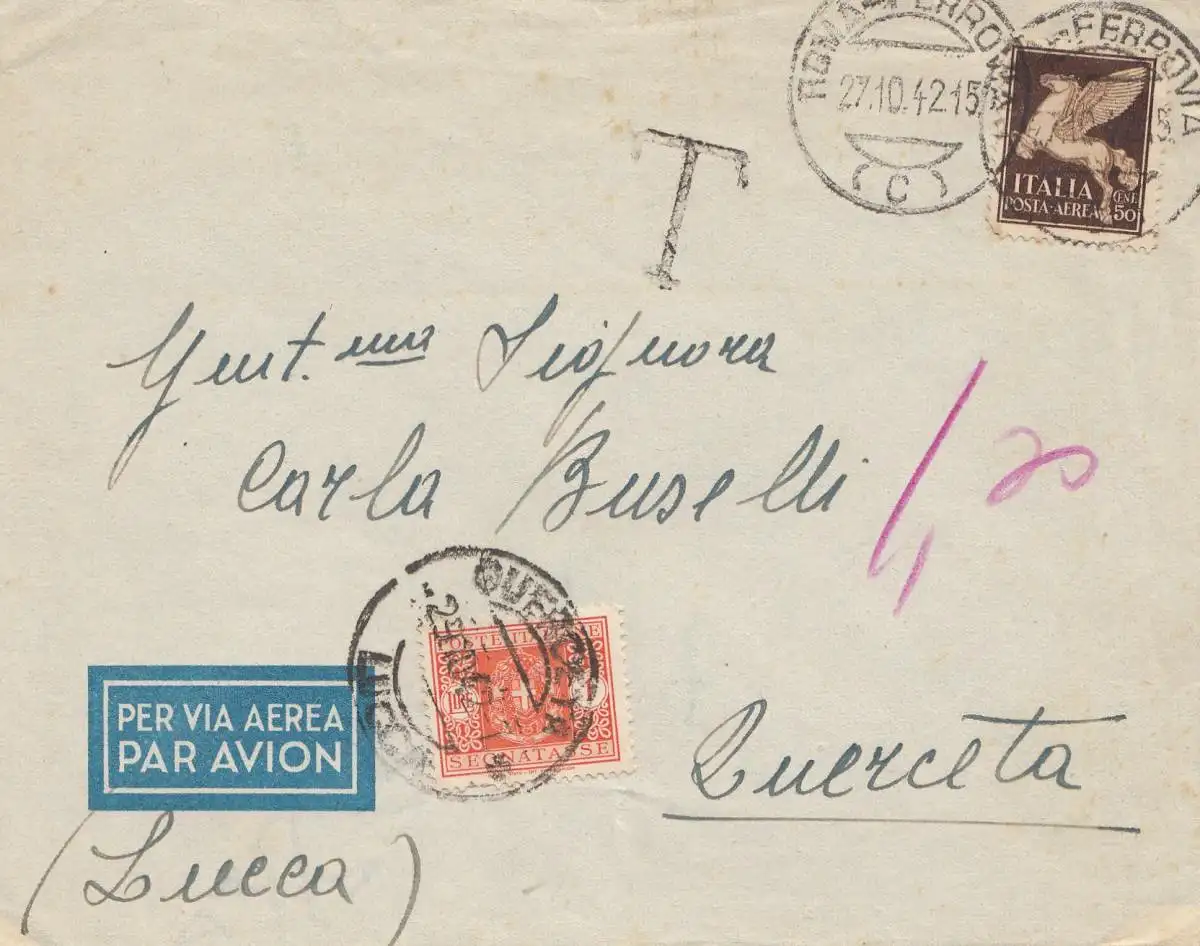 ROMA-FERROVIA
27.10.42.15
C
FERROVIA
ITALIA
POSTA-AEREA
CENT. 50
T
Gent.ma Signora
Carla Buselli
QUERCETA
LUCCA
SEGNATASSE
PER VIA AEREA
PAR AVION
Querceta
(Lucca)